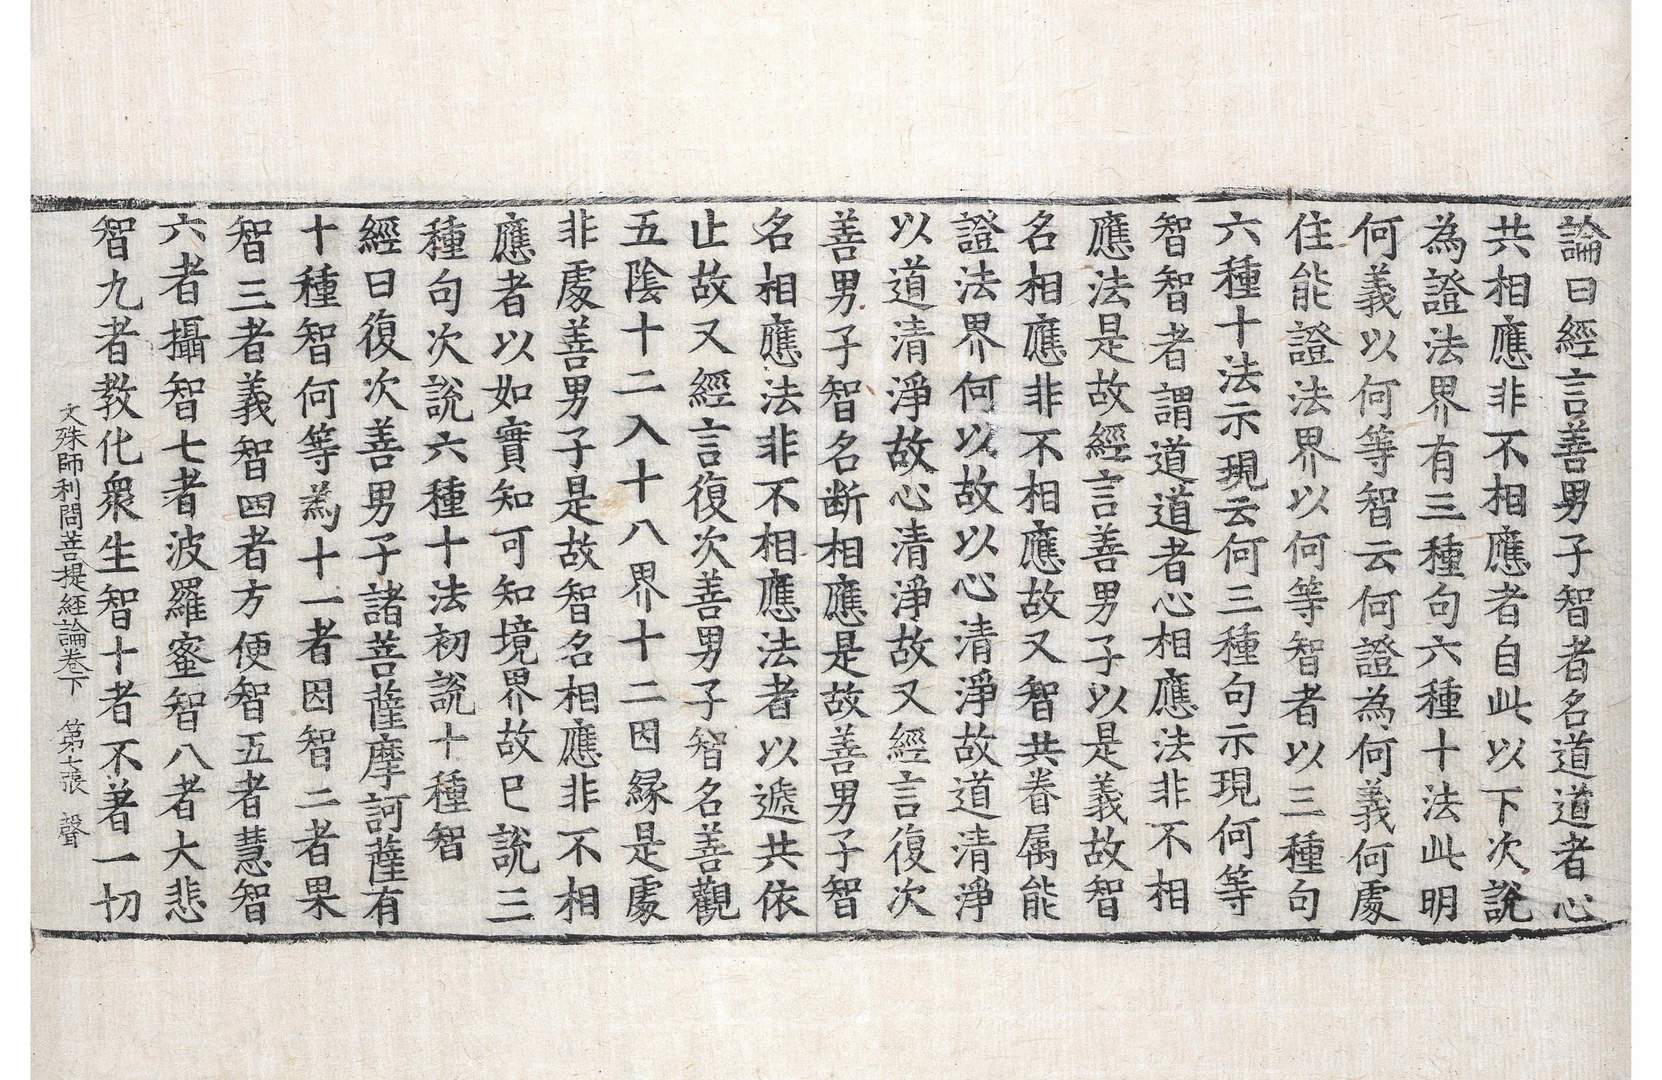 論曰經言善男子智者名道道者心
共相應非不相應者自此以下次說
為證法界有三種句六種十法此明
何義以何等智云何證為何義何處
住能證法界以何等智者以三種句
六種十法示現云何三種句示現何等
智智者謂道道者心相應法非不相
應法是故經言善男子以是義故智
名相應非不相應故又智共眷属能
證法界何以故以心清淨故道清淨
以道清淨故心清淨故又經言復次
善男子智名断相應是故善男子智
名相應法非不相應法者以遞共依
止故又經言復次善男子智名善觀
五陰十二入十八界十二因縁是處
非處善男子是故智名相應非不相
應者以如實知可知境界故已說三
種句次說六種十法初說十種智
經曰復次善男子諸菩薩摩訶薩有
十種智何等為十一者因智二者果
智三者義智四者方便智五者慧智
六者攝智七者波羅蜜智八者大悲
智九者教化衆生智十者不著一切
文殊師利問菩提經論卷下 第七張 聲